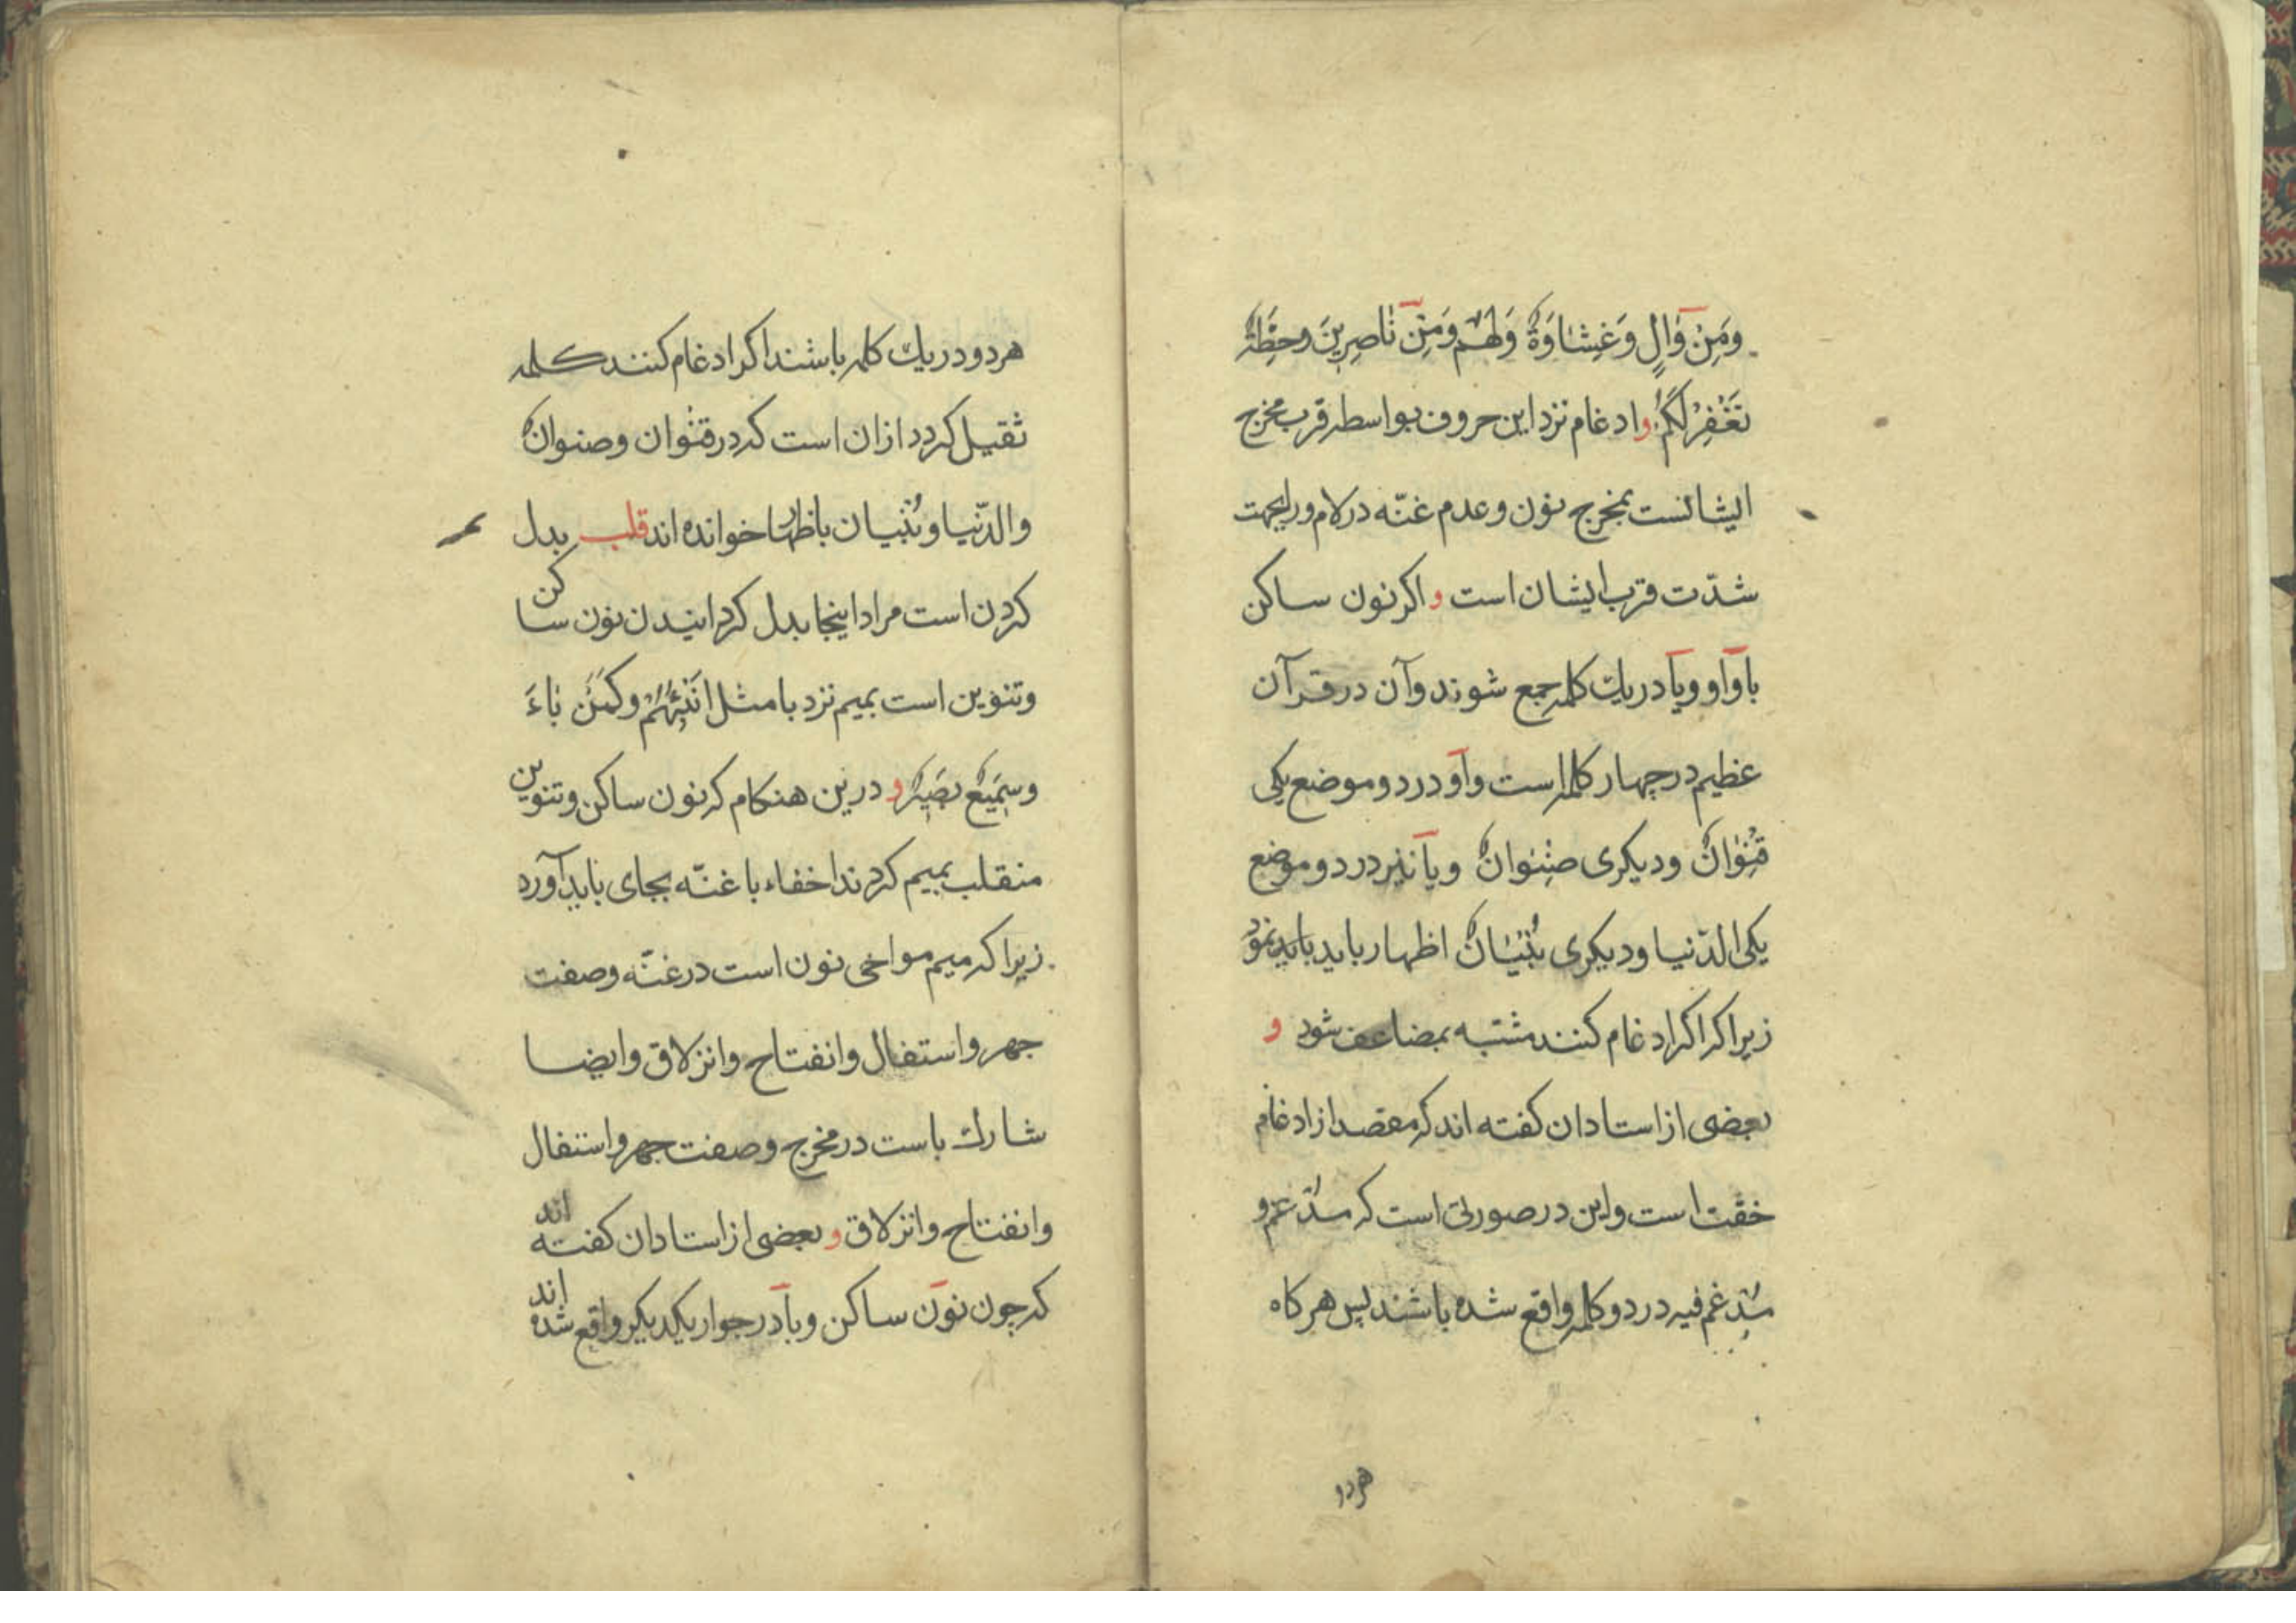 وَمِنْ وَالٍ وَغِشَاوَةٌ وَلَهُم وَمِنْ نَاصِرِينَ وحِطَّةٌ
نَغْفِرْلَكُمْ و ادغام نزد این حروف بواسطه قرب مخرج
ایشانست بمخرج نون و عدم غنّه در لام و را بجهت
شدّت قرب ایشان است و اکر نون ساکن
با واو و یا در یك کلمه جمع شوند و آن در قرآن
عظیم در چهار کلمه است واو در دو موضع یکی
قِنْوَانٌ ودیکری صِنْوَانٌ ویا نیز در دو موضع
یکی الدّنیا ودیکری بُنْیَانٌ اظهار باید باید نمود
زیرا که اکر ادغام کنند مشتبه بمضاعف شود و
بعضی از استادان کفته اند که مقصد از ادغام
خفّت است واین در صورتی است که مدغم و
مدغم فیه در دو کلمه واقع شده باشند پس هرکاه
هردو
هردو در یك کلمه باشند اکر ادغام کنند کلمه
ثقیل کردد ازان است که در قنْوان وصنوانٌ
والدّنیا وبُنْیان باظهار خوانده اند قلب بدل
کردن است مراد اینجا بدل کردانیدن نون ساکن
وتنوین است بمیم نزد با مثل اَنْبِئْهُمْ وکَمَنْ بَاءَ
وسَمِیعٌ بَصِیرٌ و درین هنکام که نون ساکن وتنوین
منقلب بمیم کردند اخفاء با غنّه بجای باید آورد
زیرا که میم مواخی نون است در غنّه وصفت
جهر واستفال وانفتاح وانزلاق وایضا
شارك باست در مخرج وصفت جهر واستفال
وانفتاح وانزلاق و بعضی از استادان کفته اند
که چون نون ساکن وبا در جوار یکدیکر واقع شده اند